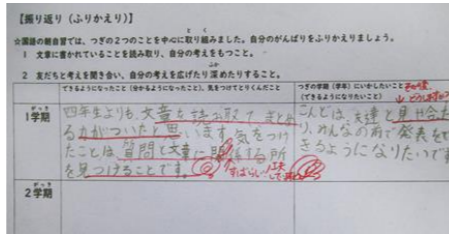 【振り返り（ふりかえり）】
☆国語の朝自習では、つぎの2つのことを中心に取り組みました。自分のがんばりをふりかえりましょう。
1 文章に書かれていることを読み取り、自分の考えをもつこと。
2 友だちと考えを聞き合い、自分の考えを広げたり深めたりすること。
できるようになったこと（分かるようになったこと）、気をつけてとりくんだこと
つぎの学期（学年）にいかしたいこと
（できるようになりたいこと）
1学期
四年生よりも、文章を読み取って、まとめ
る力がついたと思います。気をつけ
たことは、質問と文章に関係する所
を見つけることです。
すばらしい！
こんどは、友達と見せ合ったり
、みんなの前で発表をで
きるようになりたいです
2学期